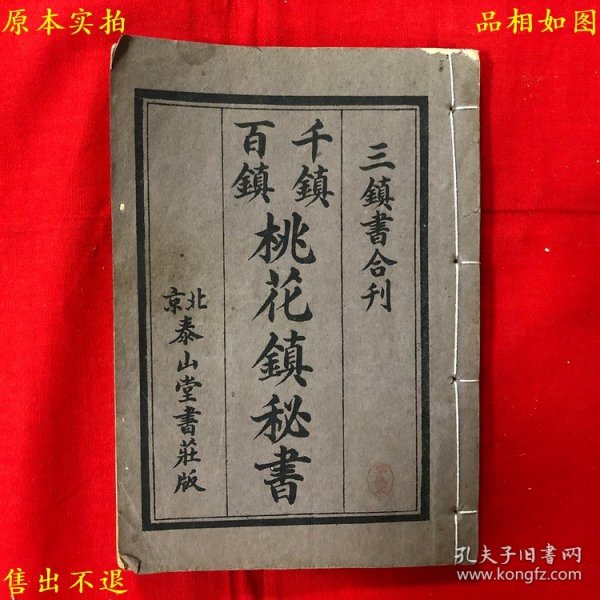 原本实拍
品相如图
三鎮書合刊
千鎮
百鎮
桃花鎮秘書
北京
泰山堂書莊版
售出不退
孔夫子旧书网
www.kongfz.com